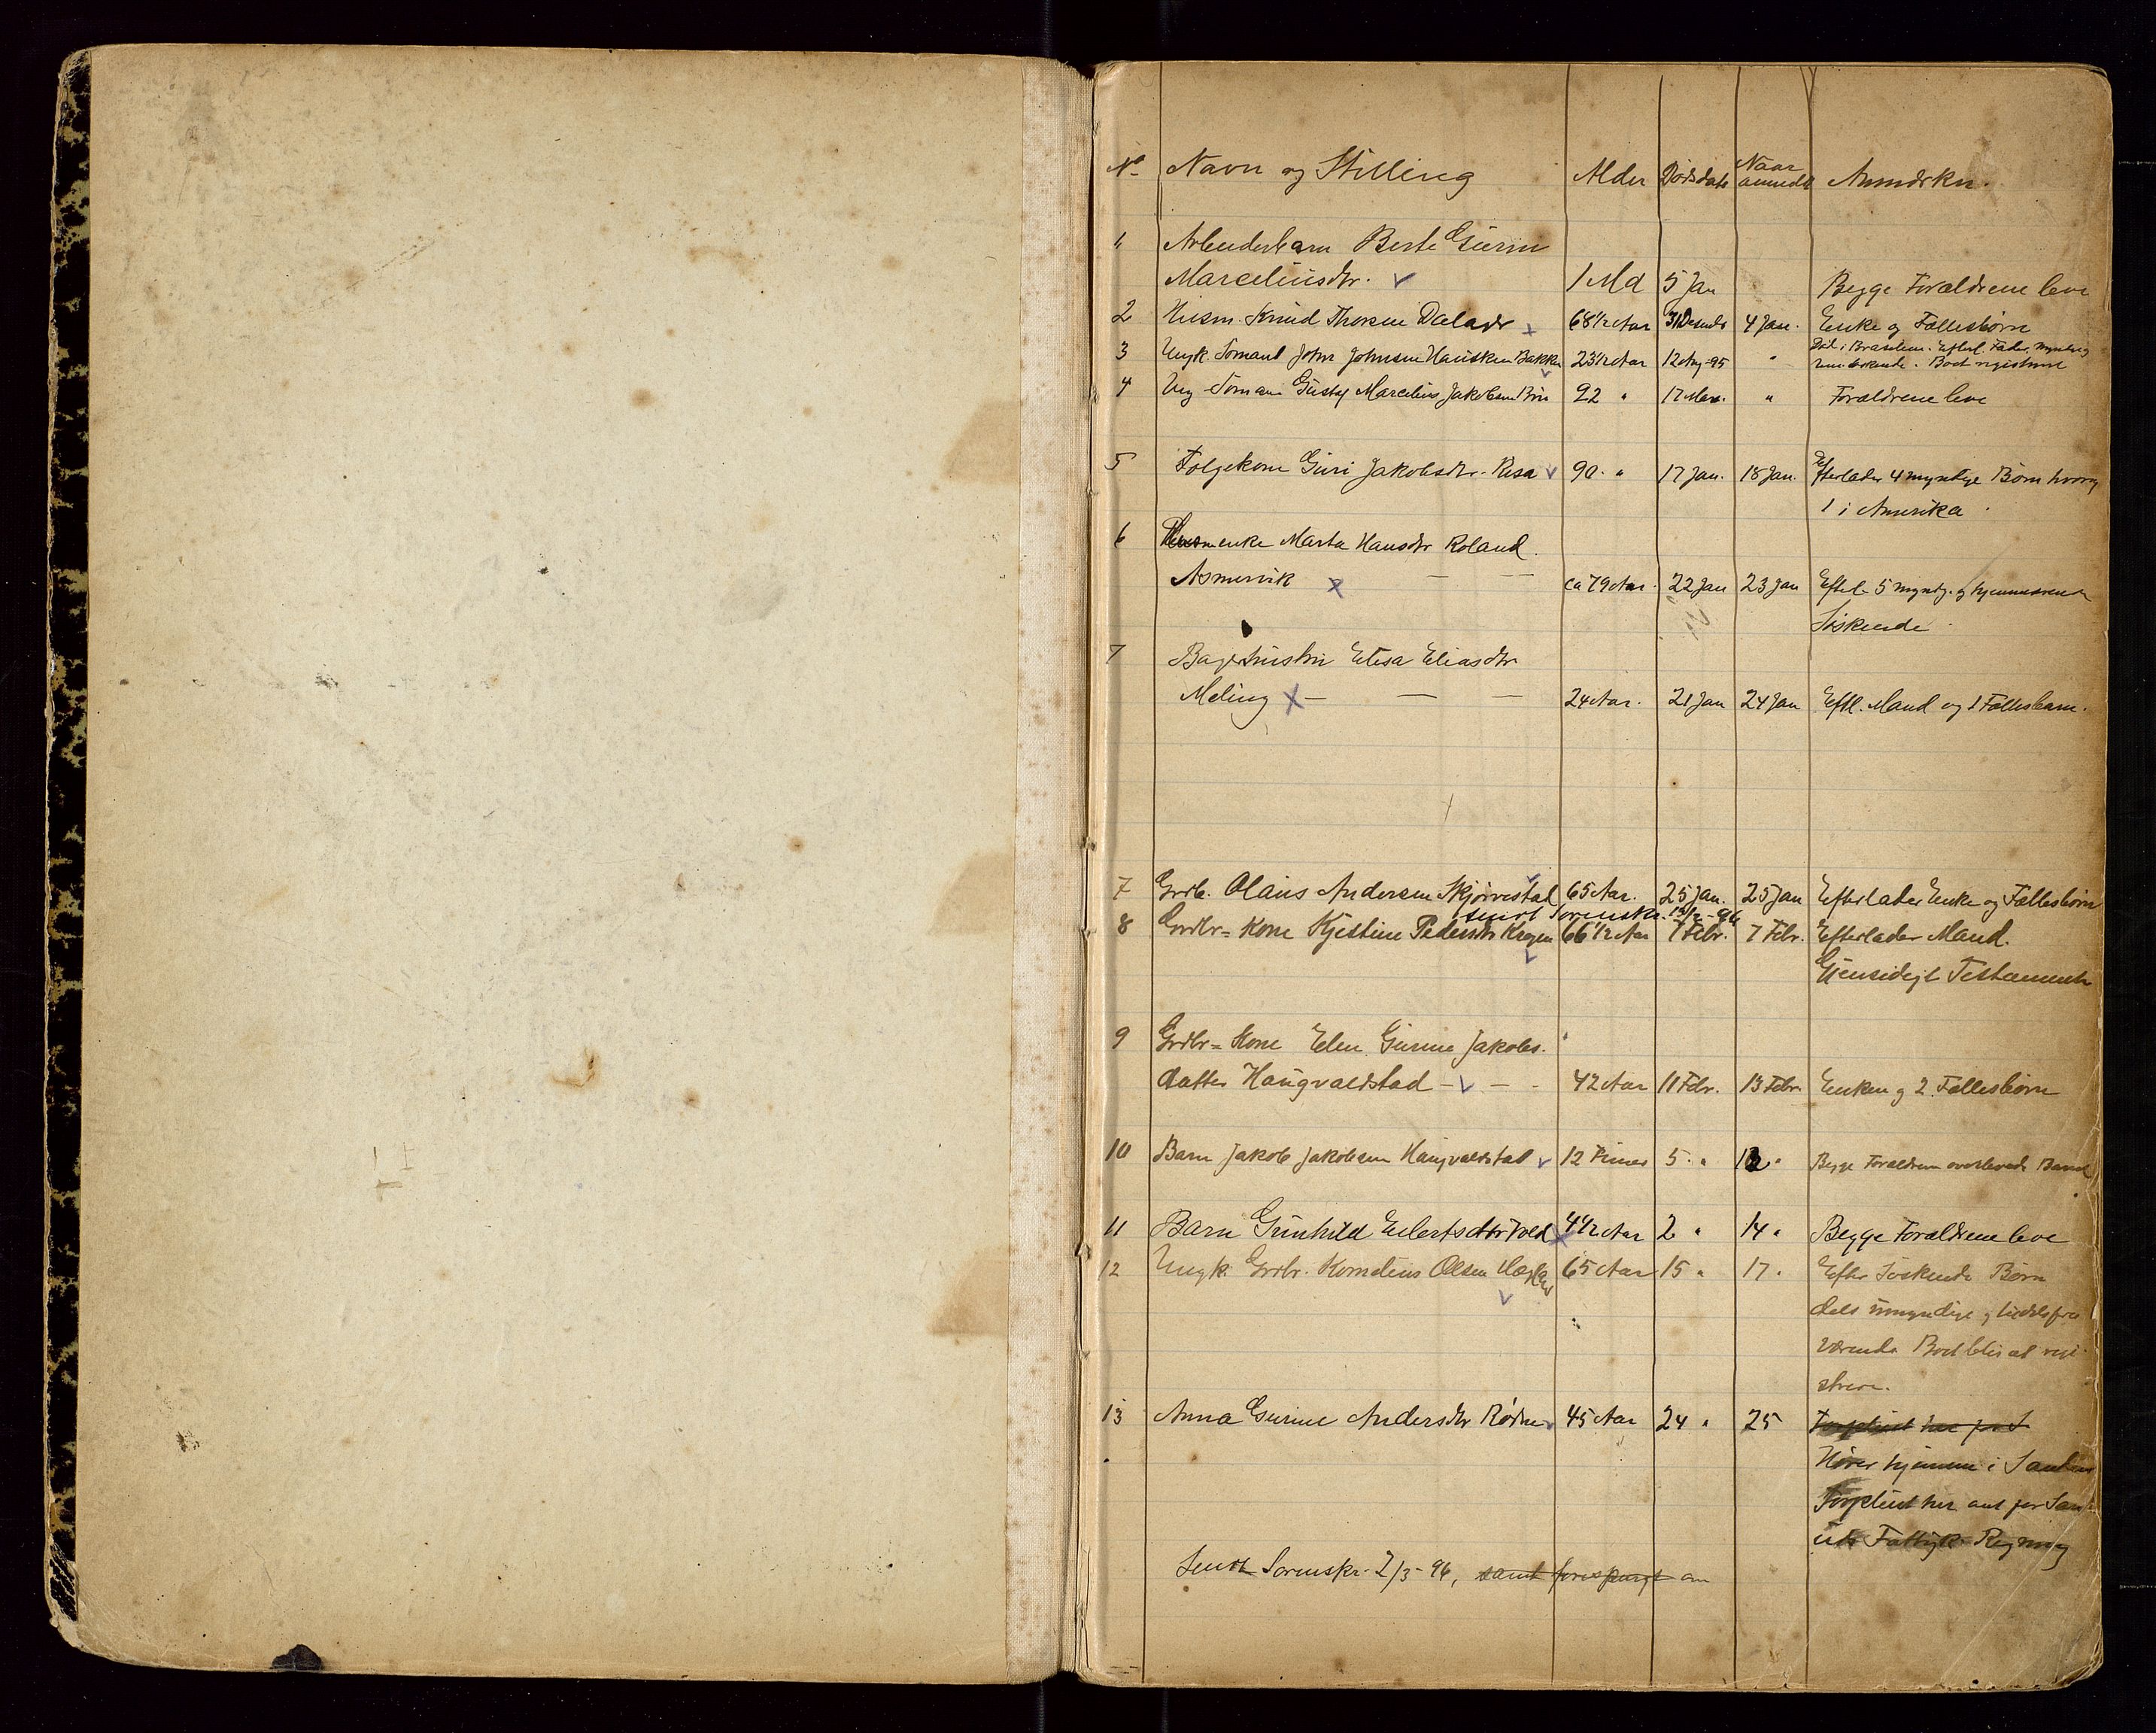 No Navn og Stilling Alder Dødsdato Naar anmeldt Anmerkn.
1 Arbeiderbarn Berte Gurine
Marceliusdtr. 1 Md 5 Jan Begge Forældrene leve
2 Husm. Knud Thorsen Dalager 68 1/2 Aar 31 Decmbr 4 Jan. Enke og Fællesbørn
3 Ungk. Sømand John Johnsen Hausken Bakken 23 1/2 Aar 12 Aug-95 " Død i Brasilien. Efterl. Fader, myndige
Boet registrere
4 Ung Sømann Gustav Marcelius Jakobsen Bru 22 " 17 " Forældrene leve
5 Følgekone Guri Jakobsdtr. Resa 90 " 17 Jan. 18 Jan. Efterlader 4 myndige Børn hvoraf
1 i Amerika
6 Husm enke Marta Hansdtr Roland.
Asmervik — — ca 79 Aar. 22 Jan 23 Jan Efterl. 5 myndg. og hjemmeværende
Søskende
7 Bagerhustru Elisa Eliasdtr
Meling — — — 24 Aar. 21 Jan 24 Jan Eftl. Mand og 1 Fællesbarn.
7 Grdb. Olaus Andersen Skjørvestad 65 Aar. 25 Jan. 25 Jan Efterlader Enke og Fællesbørn
sendt Sorenskr. 13/2-96
8 Grdbr= Kone Kjestine Pedersdtr Kragen 66 1/2 Aar 7 Febr. 7 Febr. Efterlader Mand.
Gjensidigt Testamente
9 Grdbr= Kone Elen Gurine Jakobs.
datter Haugvaldstad — — - 42 Aar 11 Febr. 13 Febr. Enkem. og 2 Fællesbørn
10 Barn Jakob Jakobsen Haugvaldstad 12 Timer 5. " " Begge Forældrene overlevede Barnet
11 Barn Gunhild Eilertsdtr Vold 4 1/2 Aar 2 " 14 " Begge Forældrene leve
12 Ungk. Grdbr. Kornelius Olsen 65 Aar 15 " 17. Efter Søskende Børn
dels umyndige og tildels fra
værende Boet blir at regi-
strere.
13 Anna Gurine Andersdtr Rødne 45 Aar 24 " 25 Forpleiet her for S
Hører hjemme i
Forpleiet her ant for
Fattigk. Regning
Sendt Sorenskr. 2/3-96, samt forespurgt om